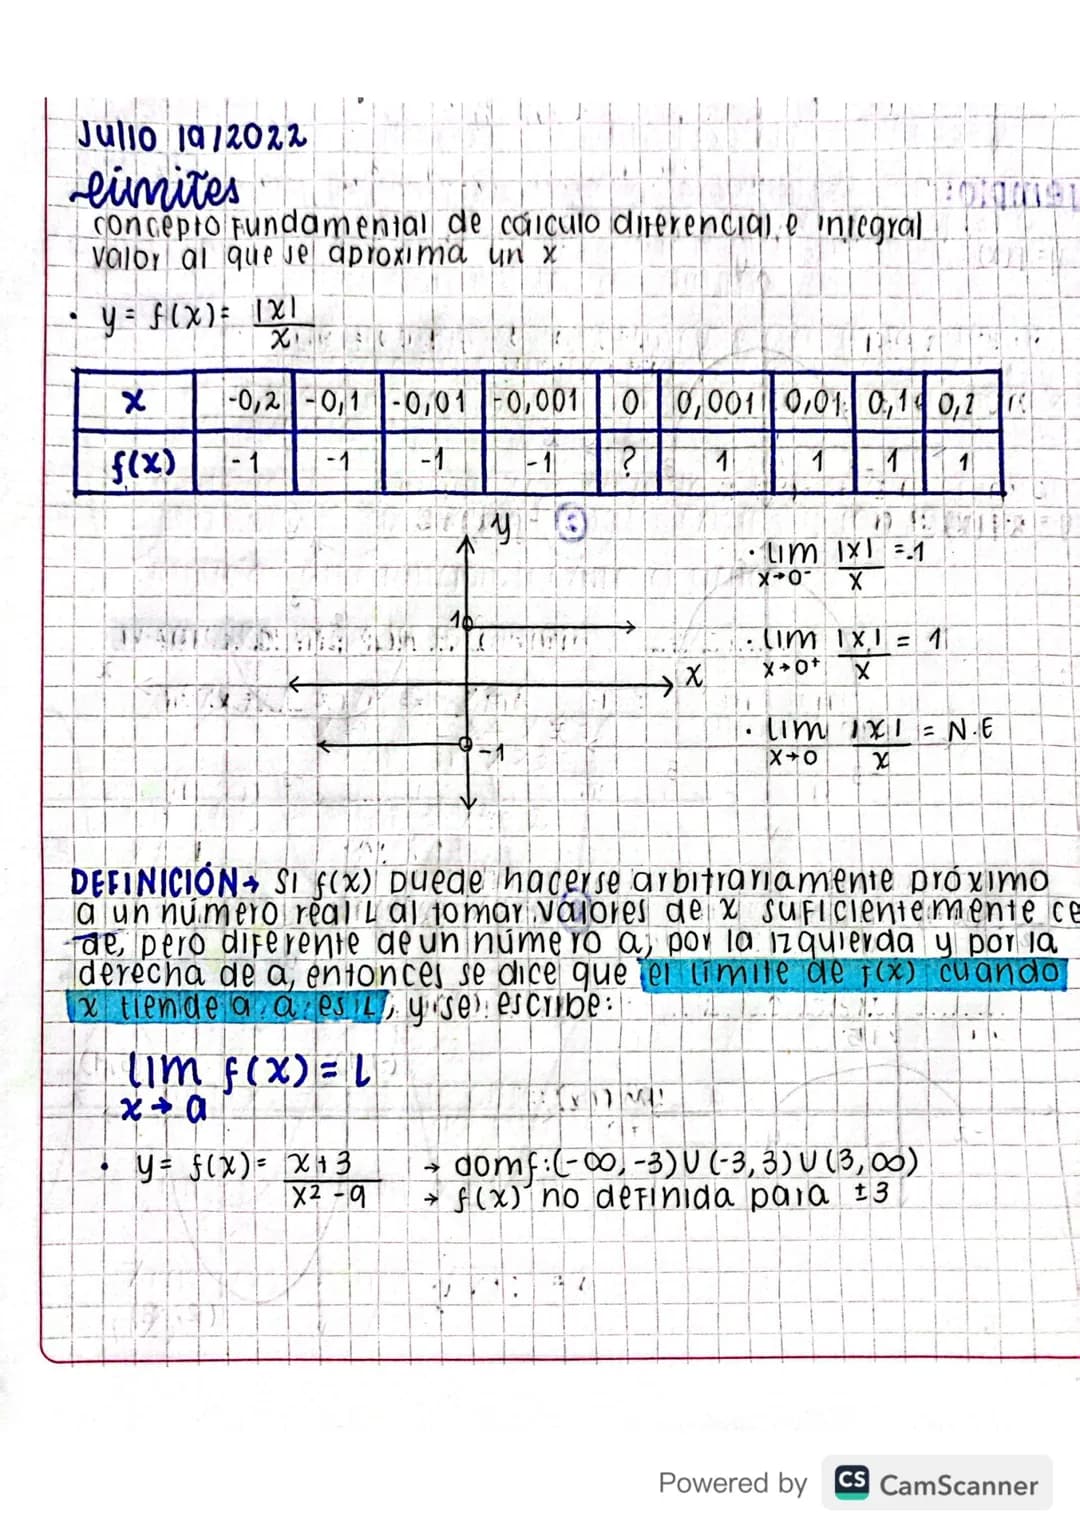 Julio 19/2022
Límites
concepto fundamental de cálculo diferencial e integral
valor al que se aproxima un x
• y = f(x) = |x|/x
x -0,2 -0,1 -0,01 -0,001 0 0,001 0,01 0,1 0,2
f(x) -1 -1 -1 -1 ? 1 1 1 1
y
1
x
-1
• lim x→0⁻ |x|/x = -1
• lim x→0⁺ |x|/x = 1
• lim x→0 |x|/x = N.E
DEFINICIÓN→ Si f(x) puede hacerse arbitrariamente próximo
a un número real L al tomar valores de x suficientemente ce
de, pero diferente de un número a, por la izquierda y por la
derecha de a, entonces se dice que el límite de f(x) cuando
x tiende a a es L, y se escribe:
lim f(x) = L
x → a
• y = f(x) = x+3/x²-9 → domf:(-∞,-3)∪(-3,3)∪(3,∞)
→ f(x) no definida para ±3
Powered by CS CamScanner